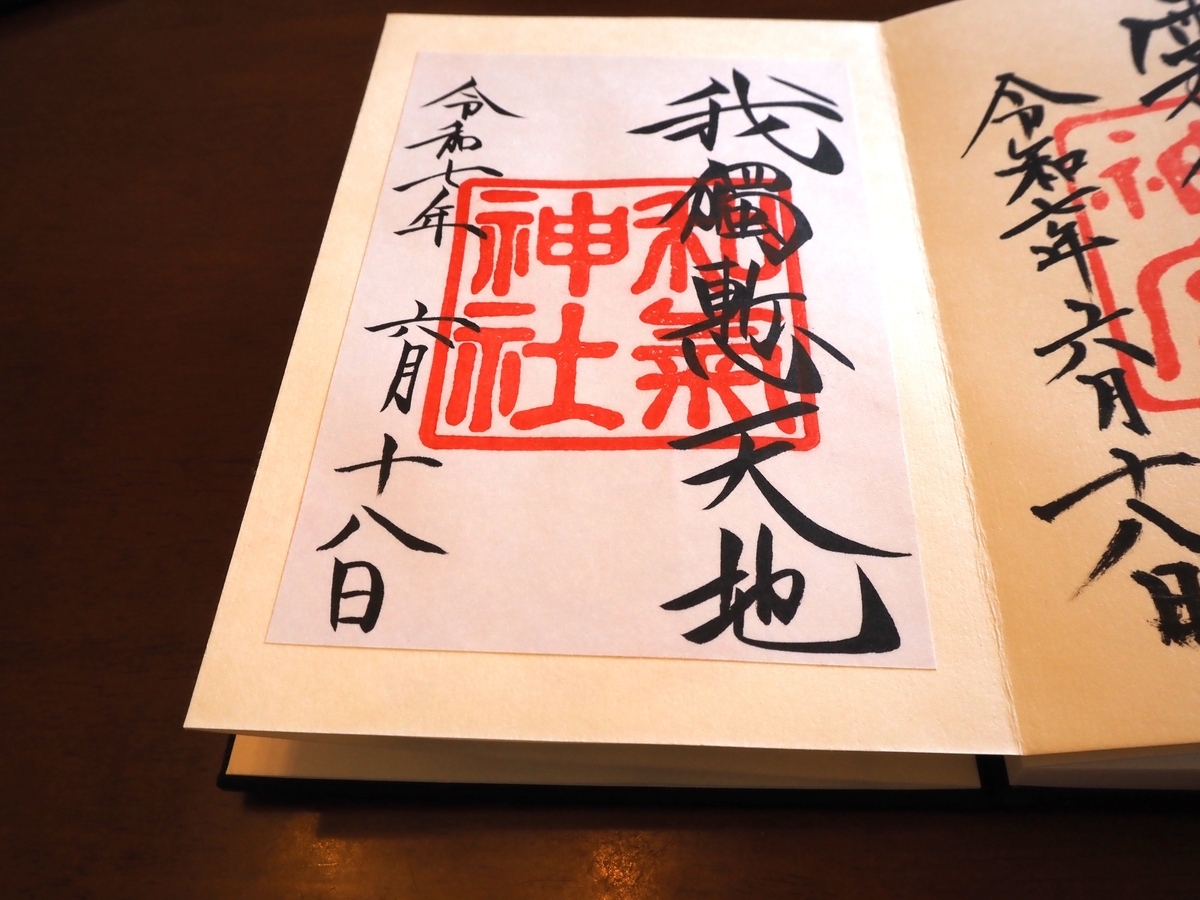 令和七年六月十八日
神
我獨慙天地
和氣
神社
令和七年六月十八日